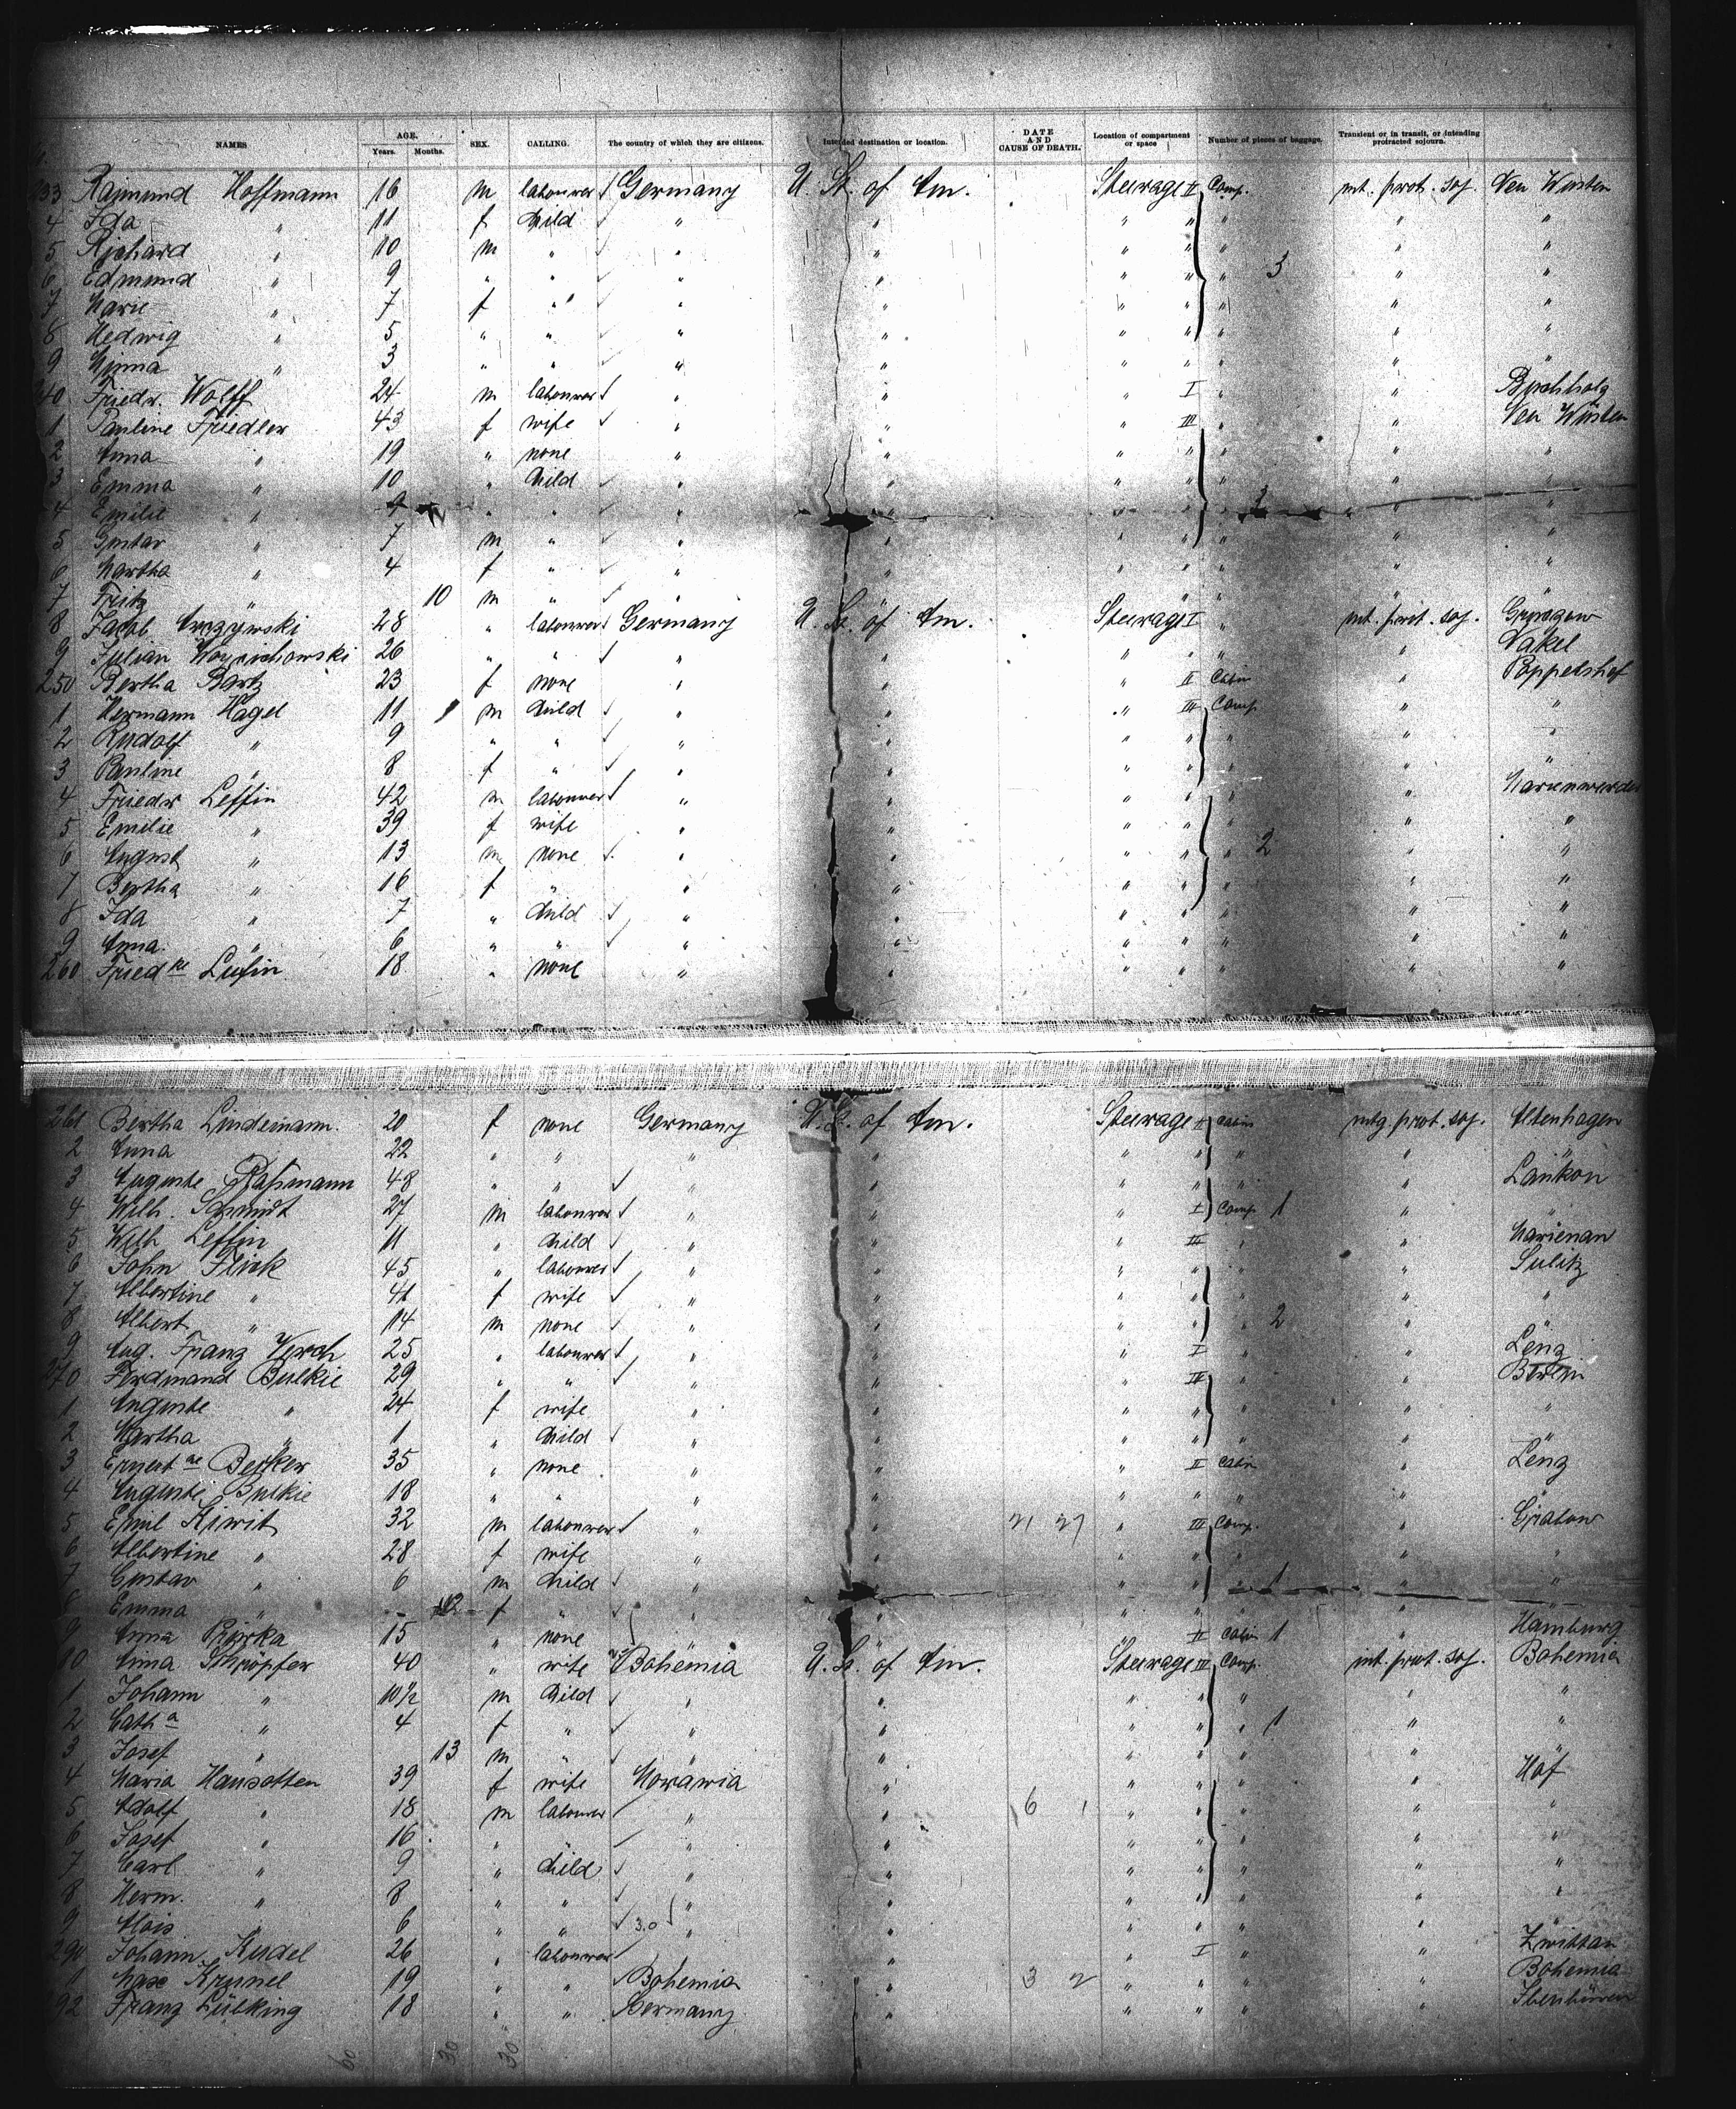 NAMES AGE. Years. Months. SEX. CALLING. The country of which they are citizens. Intended destination or location. DATE AND CAUSE OF DEATH. Location of compartment or space Number of pieces of baggage. Transient or in transit, or intending protracted sojourn.
233 Raimund Hoffmann 16 m labourer Germany U. St. of Am. Steerage II Comp. int. prot. soj.
4 Ida " 11 f child " " " " " " "
5 Richard " 10 m " " " " " " " "
6 Edmund " 9 " " " " " " " 3 " "
7 Marie " 7 f " " " " " " " "
8 Hedwig " 5 " " " " " " " " "
9 Minna " 3 " " " " " " " " "
240 Friedr. Wolff 24 m labourer " " " I " " Buchholz
1 Pauline Friedler 43 f wife " " " III " "
2 Anna " 19 " none " " " " " "
3 Emma " 10 " child " " " " " " "
4 Emilie " 9 " " " " " " " " "
5 Gustav " 7 m " " " " " " " "
6 Martha " 4 f " " " " " " " "
7 Fritz " 10 m " " " " " " " "
8 Jacob 28 " labourer Germany U. St. of Am. Steerage I " int. prot. soj.
9 Julian 26 " " " " " " " " Nakel
250 Bertha Bartz 23 f none " " " II Cabin " Poppelshof
1 Hermann Hagel 11 m child " " " III Comp. " "
2 Rudolf " 9 " " " " " " " " "
3 Pauline " 8 f " " " " " " " "
4 Friedr Leffin 42 m labourer " " " " " " Marienwerder
5 Emilie " 39 f wife " " " " " " "
6 August " 13 m none " " " " " 2 " "
7 Bertha " 16 f " " " " " " " "
8 Ida " 7 " child " " " " " " "
9 Anna " 6 " " " " " " " " "
260 Friedke 18 " none " " " " " " "
261 Bertha Lindemann. 20 f none Germany U. St. of Am. Steerage II Cabin intg. prot. soj. Altenhagen
2 Anna 22 " " " " " " " "
3 Auguste 48 " " " " " " " "
4 Wilh. Schmidt 27 m labourer " " " I Comp. 1 " "
5 Wilh Leffin 11 " child " " " III " " Marienau
6 John Flick 45 " labourer " " " " " "
7 Albertine " 41 f wife " " " " " " "
8 Albert " 14 m none " " " " " 2 "
9 Aug. Franz 25 " labourer " " " I " " Lenz
270 Ferdinand Bulkie 29 " " " " " III " " Berlin
1 Auguste " 24 f wife " " " " " " "
2 Martha " 1 " child " " " " " " "
3 Ernestine 35 " none " " " II Cabin " Lenz
4 Auguste Bulkie 18 " " " " " " " " "
5 Emil Kiwit 32 m labourer " " 21 27 " III Comp. " Grabow
6 Albertine " 28 f wife " " " " " " "
7 Gustav " 6 m child " " " " " 1 " "
8 Emma " f " " " " " " "
9 Anna 15 " none " " " II Cabin 1 " Hamburg
10 Anna Schröpfer 40 " wife Bohemia U. St. of Am. Steerage III Comp. int. prot. soj. Bohemia
1 Johann " 10½ m child " " " " " " "
2 Catha " 4 f " " " " " " 1 " "
3 Josef " 13 m " " " " " " "
4 Maria Hausotten 39 f wife Morawia " " " " " Hof
5 Adolf " 18 m labourer " " 6 1 " " " " "
6 Josef " 16 " " " " " " " " "
7 Carl " 9 " child " " " " " " "
8 Herm. " 8 " " " " " " " " "
9 Alois " 6 " " 30 " " " " " "
290 Johann Kudel 26 " labourer " " " I " " Zwittau
1 Max 19 " " Bohemia " 3 2 " " " " Bohemia
292 Franz Lübking 18 " " Germany " " " " "
60 30 30